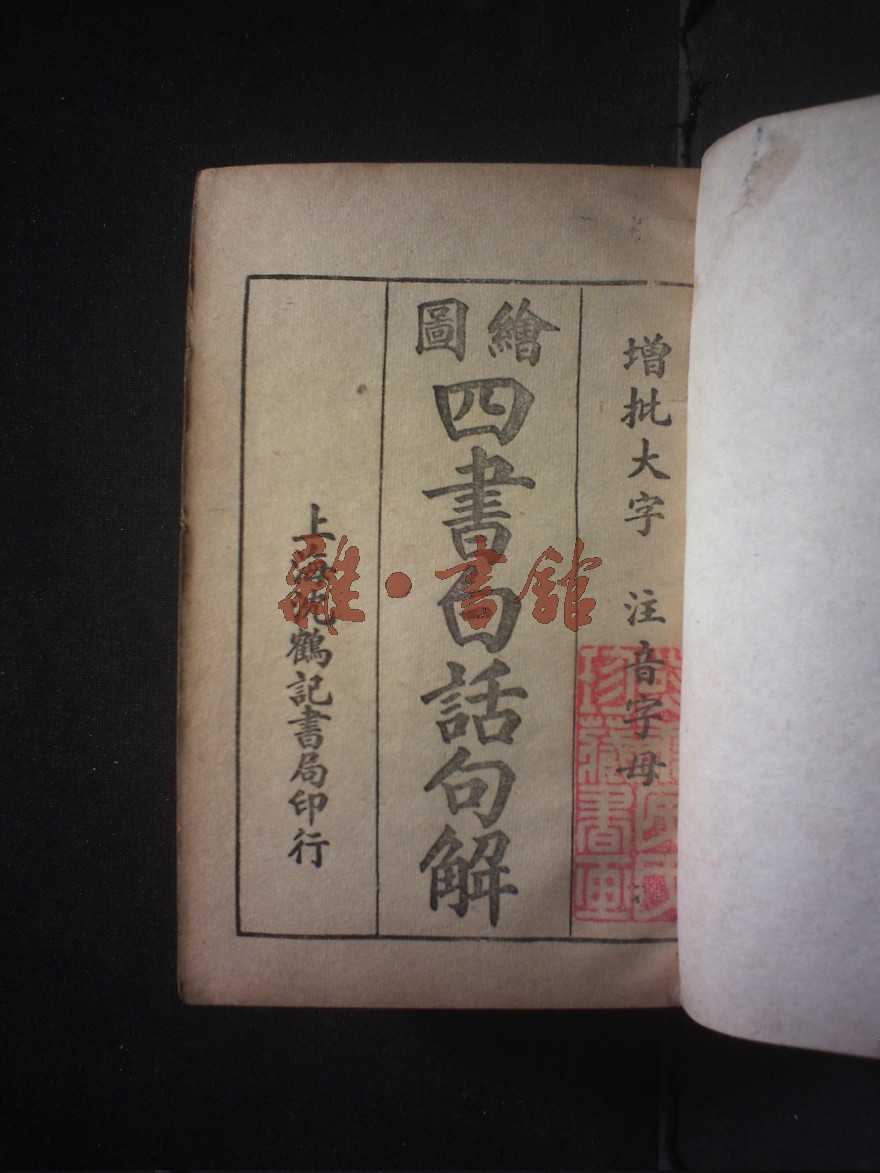 增批大字 注音字母
繪圖
四書白話句解
上海沈鶴記書局印行
雜·書館
珍藏書画